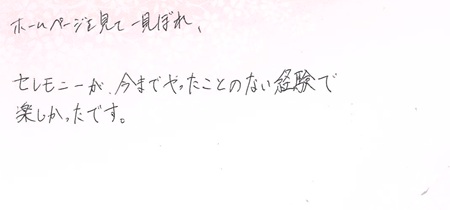 ホームページを見て一見ぼれ、
セレモニーが、今までやったことのない経験で
楽しかったです。